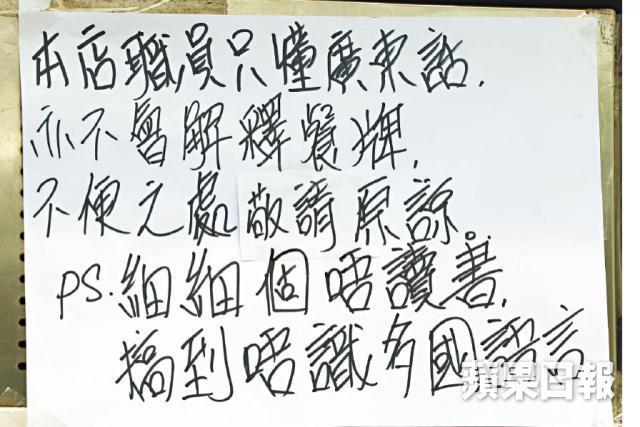 本店職員只懂廣東話.
亦不會解釋餐牌,
不便之處敬請原諒。
PS.細細個唔讀書,
搞到唔識多國語言
蘋果日報